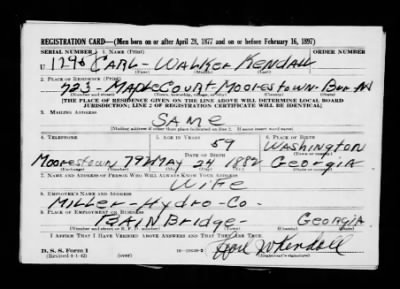 REGISTRATION CARD—(Men born on or after April 28, 1877 and on or before February 16, 1897)
SERIAL NUMBER 1. NAME (Print) ORDER NUMBER
U 1296 CARL - WALKER KENDALL
(First) (Middle) (Last)
2. PLACE OF RESIDENCE (Print)
723 - MAPLE COURT - MOORESTOWN - BUR - NJ
(Number and street) (Town, township, village, or city) (County) (State)
[THE PLACE OF RESIDENCE GIVEN ON THE LINE ABOVE WILL DETERMINE LOCAL BOARD
JURISDICTION; LINE 2 OF REGISTRATION CERTIFICATE WILL BE IDENTICAL]
3. MAILING ADDRESS
SAME
[Mailing address if other than place indicated on line 2. If same insert word same]
4. TELEPHONE 5. AGE IN YEARS 6. PLACE OF BIRTH
59 WASHINGTON
DATE OF BIRTH
MOORESTOWN 792 MAY 24 1882 GEORGIA
7. NAME AND ADDRESS OF PERSON WHO WILL ALWAYS KNOW YOUR ADDRESS
WIFE
8. EMPLOYER'S NAME AND ADDRESS
MILLER - HYDRO - CO -
9. PLACE OF EMPLOYMENT OR BUSINESS
BAINBRIDGE - GEORGIA
(Number and street or R. F. D. number) (Town) (County) (State)
I AFFIRM THAT I HAVE VERIFIED ABOVE ANSWERS AND THAT THEY ARE TRUE.
D. S. S. Form 1
Carl W Kendall
(Registrant's signature)